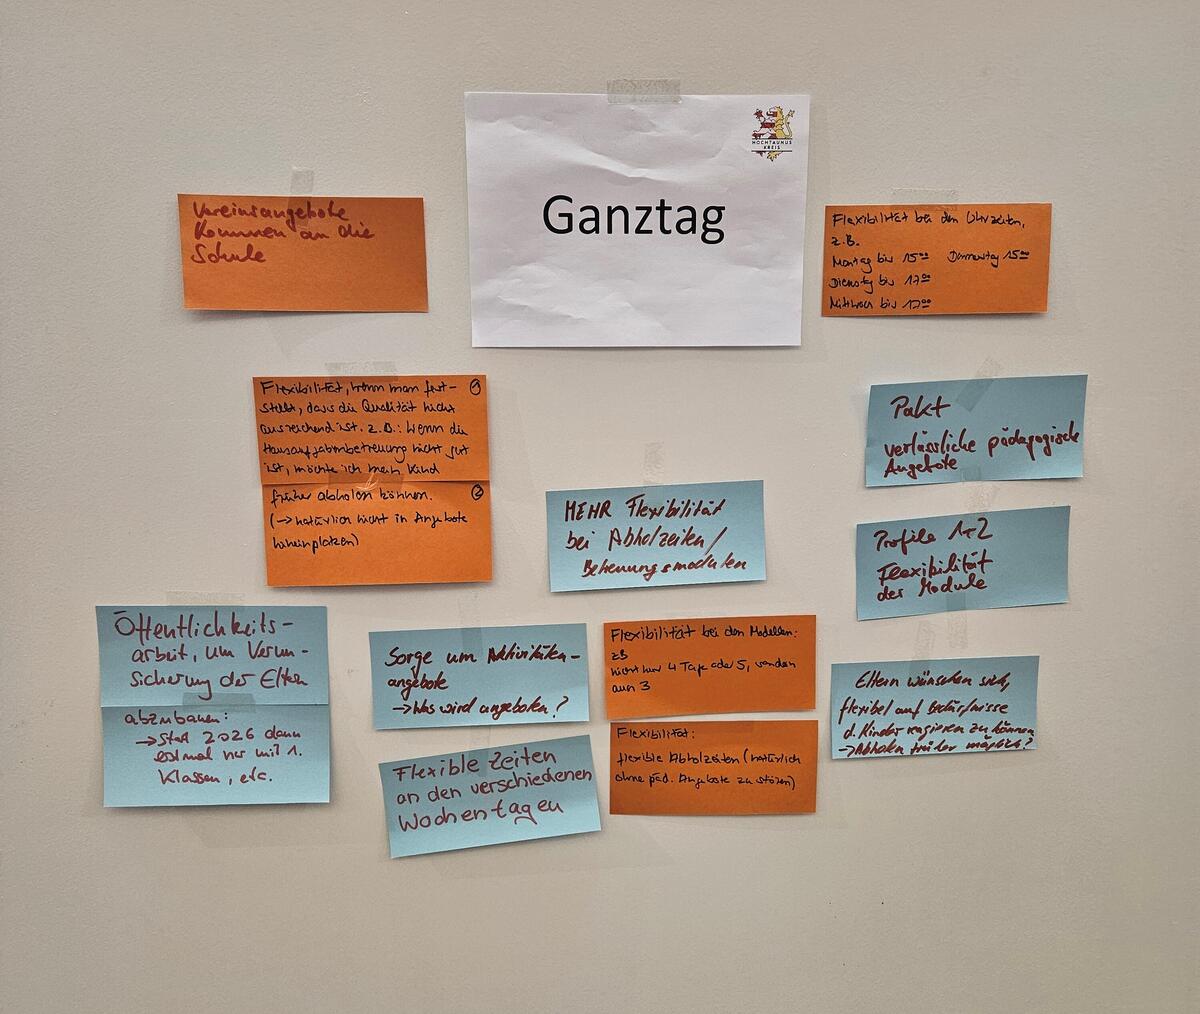 HOCHTAUNUS
KREIS
Ganztag
Vereinsangebote
kommen an die
Schule
Flexibilität bei den Uhrzeiten,
z.B.
Montag bis 15⁰⁰ Donnerstag 15⁰⁰
Dienstag bis 17⁰⁰
Mittwoch bis 17⁰⁰
Flexibilität, wenn man fest- ①
stellt, dass die Qualität nicht
ausreichend ist. z.B.: Wenn die
Hausaufgabenbetreuung nicht gut
ist, möchte ich mein Kind
früher abholen können. ②
(→ natürlich nicht in Angebote
hineinplatzen)
Pakt
verlässliche pädagogische
Angebote
MEHR Flexibilität
bei Abholzeiten/
Betreuungsmodulen
Profile 1+2
Flexibilität
der Module
Öffentlichkeits-
arbeit, um Verun-
sicherung der Eltern
abzubauen:
→ Start 2026 dann
erstmal nur mit 1.
Klassen, etc.
Sorge um Aktivitäten-
angebote
→ Was wird angeboten?
Flexible Zeiten
an den verschiedenen
Wochentagen
Flexibilität bei den Modellen:
zB
nicht nur 4 Tage oder 5, sondern
auch 3
Flexibilität:
flexible Abholzeiten (natürlich
ohne päd. Angebote zu stören)
Eltern wünschen sich,
flexibel auf Bedürfnisse
d. Kinder reagieren zu können
→ Abholen früher möglich?